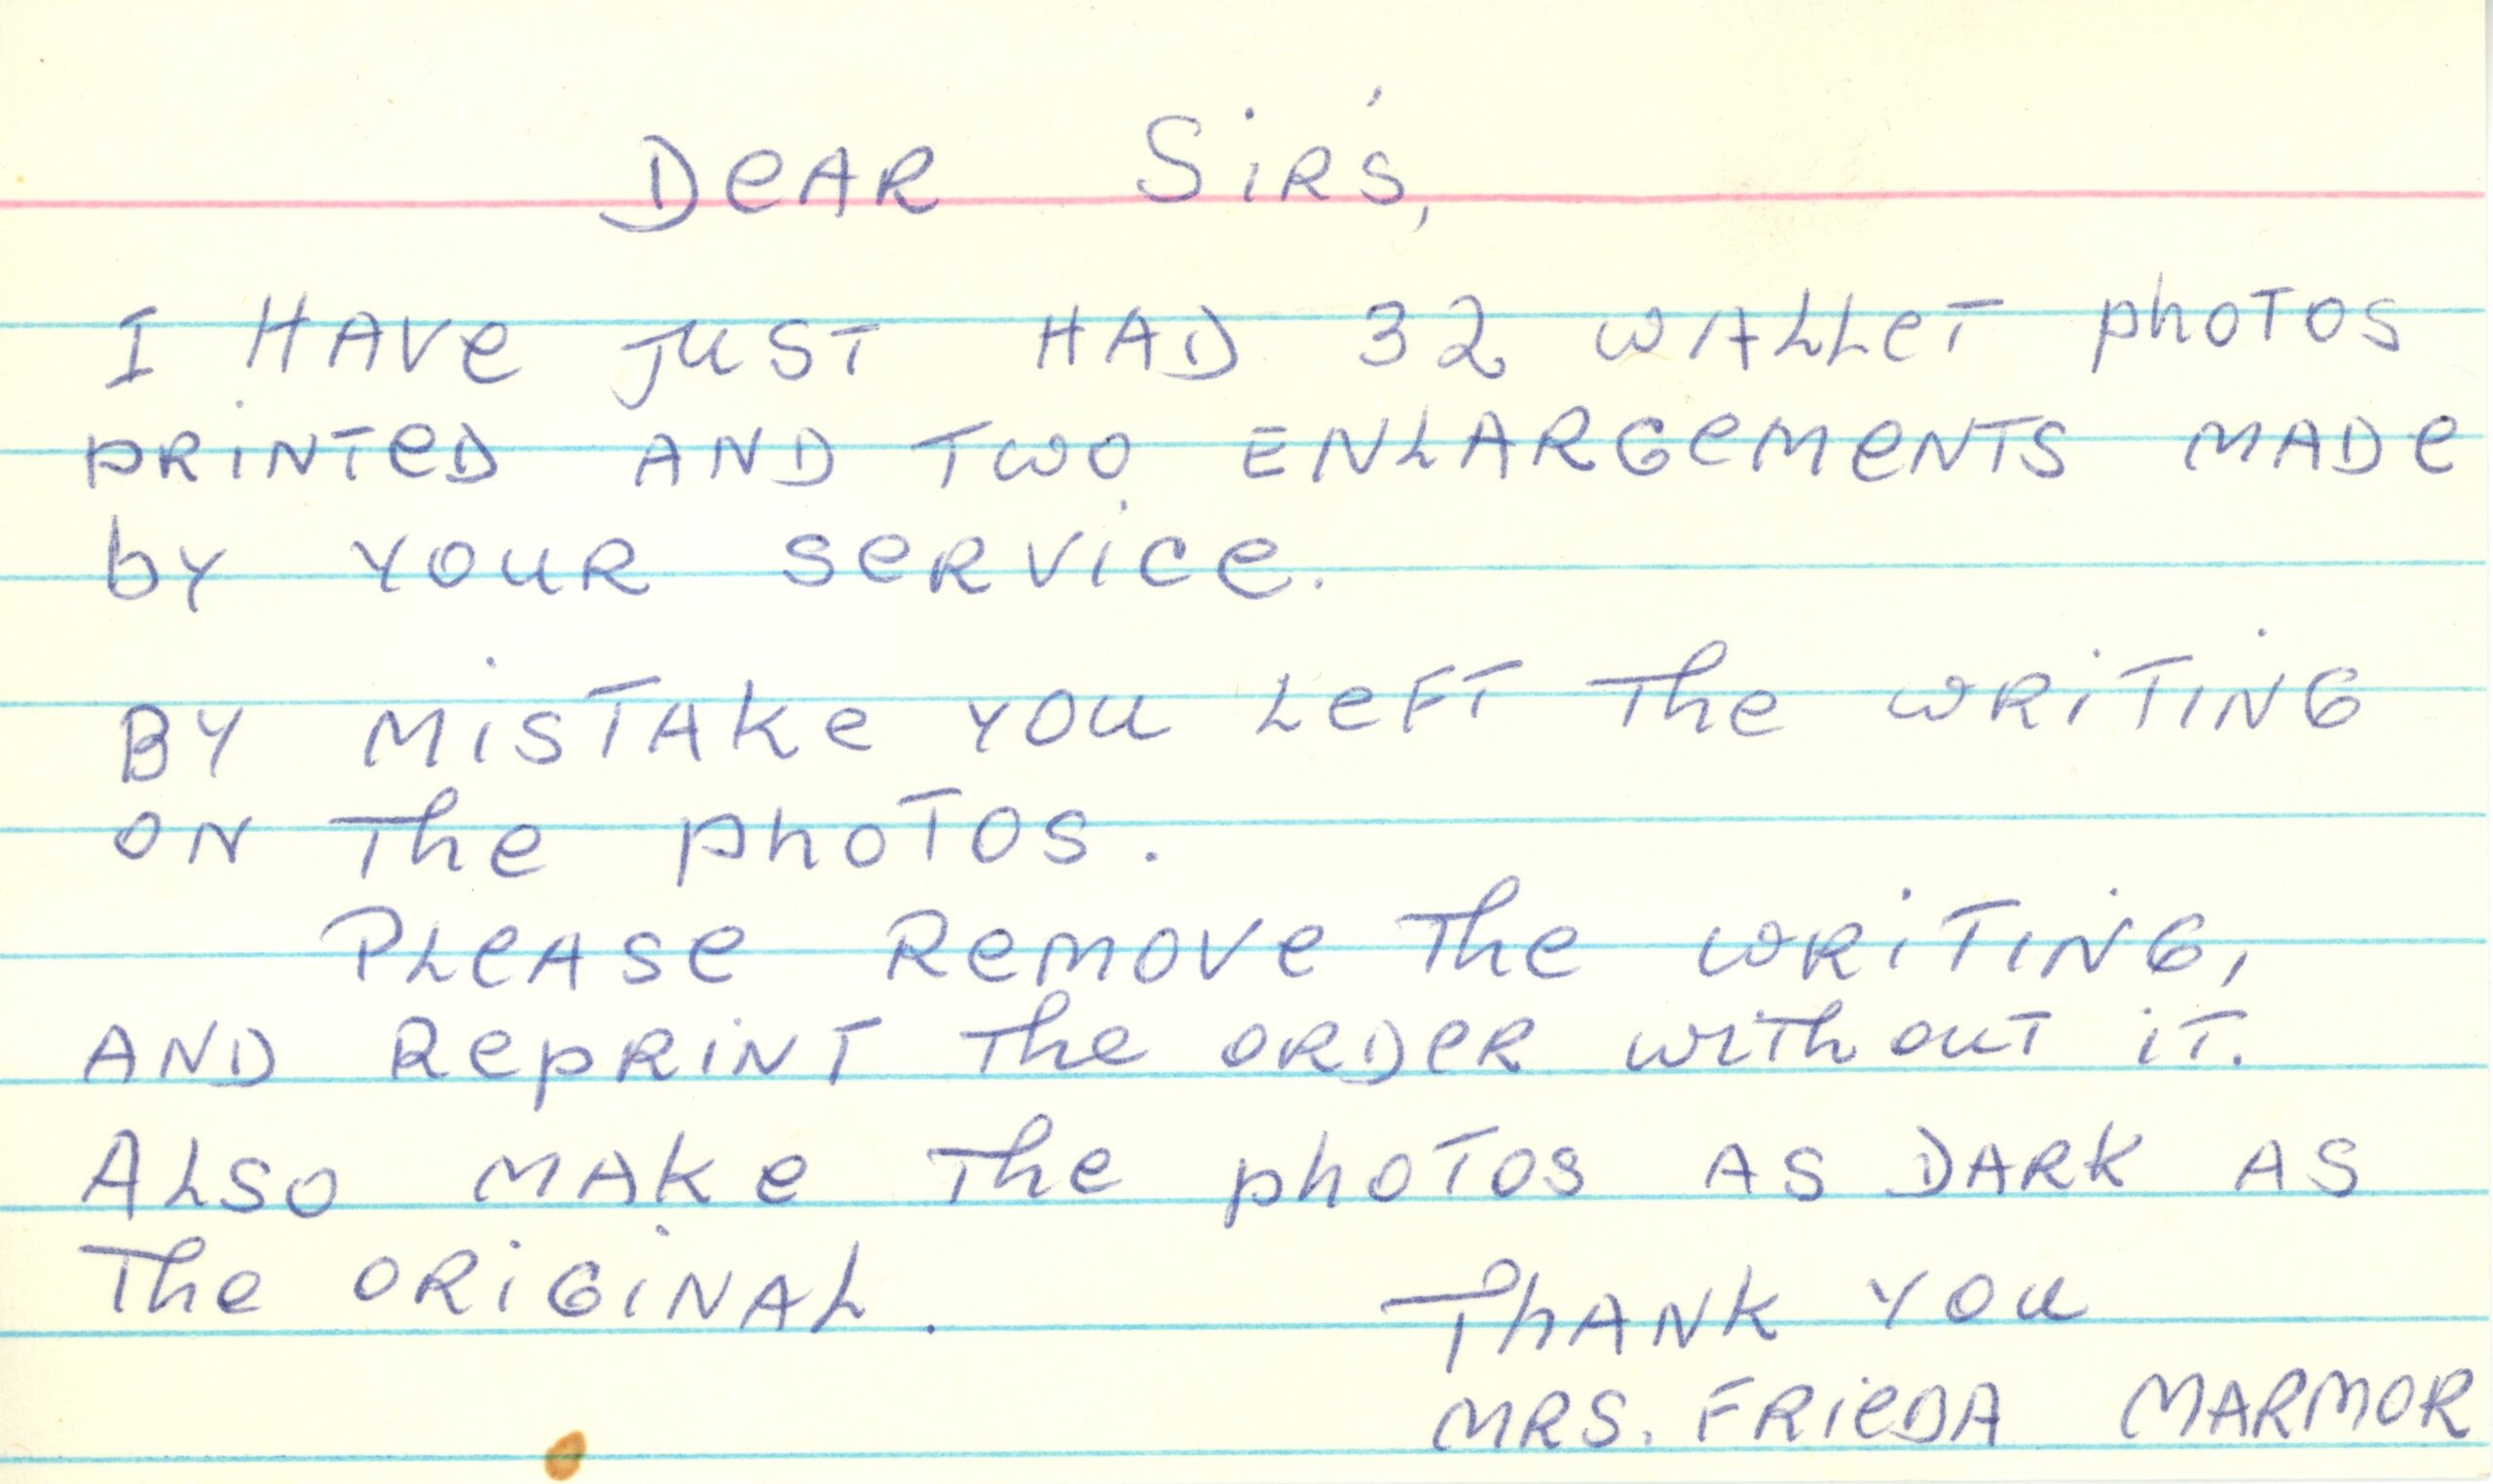 Dear Sir's,
I HAVE JUST HAD 32 WALLET photos
PRINTED AND TWO ENLARGEMENTS MADE
by YOUR SERVICE.
BY MISTAKE YOU LEFT The WRITING
ON The photos.
PLEASE REMOVE The WRITING,
AND REPRINT The ORDER without iT.
ALSO MAKE The photos AS DARK AS
The ORIGINAL.
THANK YOU
MRS. FRIEDA MARMOR